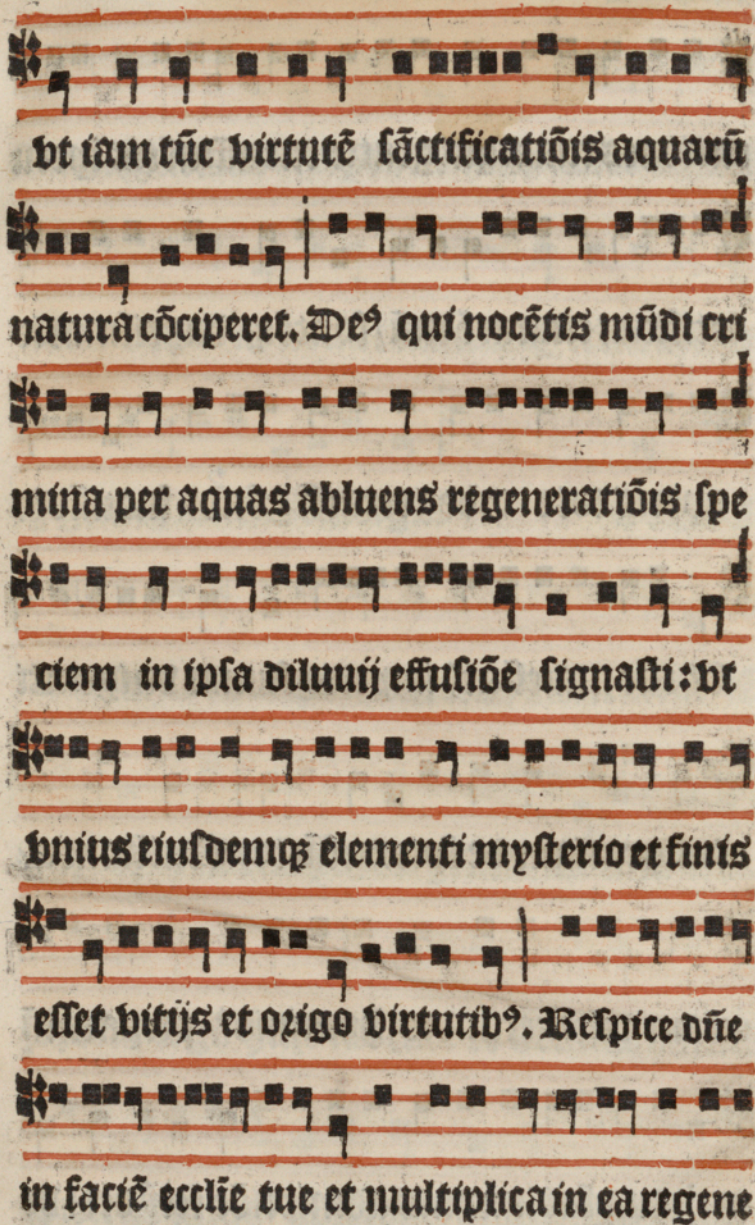 vt iam tūc virtutē ſāctificatiōis aquarū
natura cōciperet. Deꝰ qui nocētis mūdi cri
mina per aquas abluens regeneratiōis ſpe
ciem in ipſa diluuij effuſiōe ſignaſti: vt
vnius eiuſdemqꝫ elementi myſterio et finis
eſſet vitijs et oꝛigo virtutibꝰ. Reſpice dn̄e
in faciē eccľie tue et multiplica in ea regene